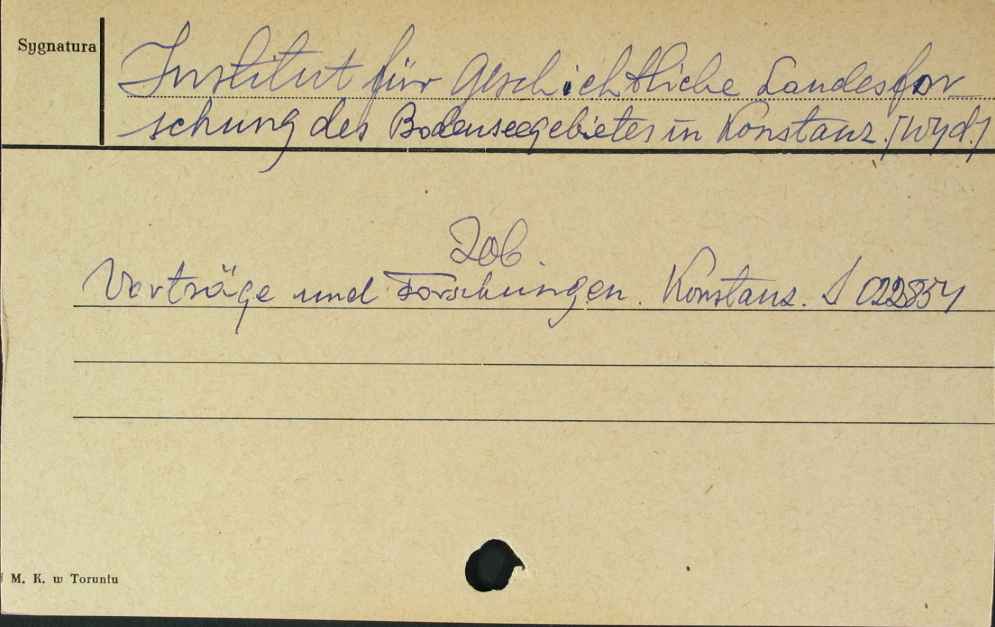 Sygnatura
Institut für Geschichtliche Landesfor
schung des Bodenseegebietes in Konstanz. [Wyd.]
Zob.
Vorträge und Forschungen. Konstanz. S 022857
M. K. w Toruniu